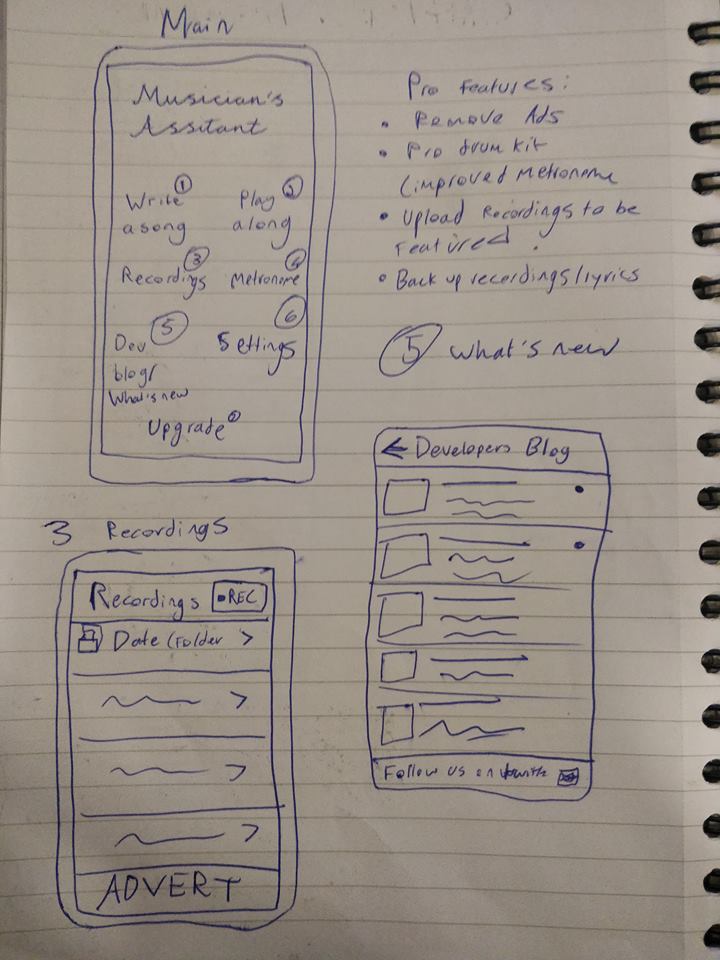 Main
Musician's
Assitant
Write ① Play ②
a song along
Recordings ③ Metronome ④
Dev ⑤ Settings ⑥
blog/
What's new
Upgrade
Pro Features:
• Remove Ads
• Pro drum kit
(improved Metronome
• Upload Recordings to be
Featured.
• Back up recordings/lyrics
⑤ What's new
← Developers Blog
Follow us on
3 Recordings
Recordings •REC
Date (Folder >
>
>
>
ADVERT